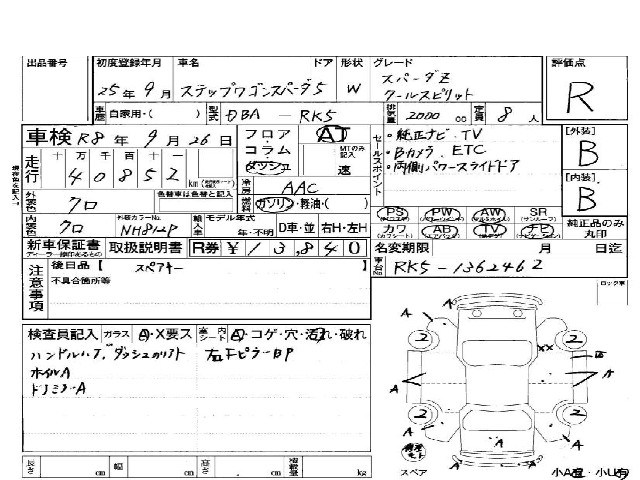 出品番号 初度登録年月 車名 ドア 形状 グレード 評価点
25年9月 ステップワゴンスパーダ5 W スパーダZ
クールスピリット
R
車歴 自家用・( ) 型式 DBA - RK5 排気量 2000 cc 定員 8人
車検 R8年9月26日 フロア・ AT
コラム・ MTのみ記入
ダッシュ 速
セールスポイント ・純正ナビ.TV
・Bカメラ. ETC
・両側パワースライドドア
[外装] B
[内装] B
走行 十 万 千 百 十 一
40852 km
冷房 AAC
外装色 クロ 色替車は色替と記入 燃料 ガソリン・軽油・( )
内装色 クロ 外装カラーNo. NH812P 輸入車 モデル年式 年・不明 D車・並 右H・左H
PS PW AW SR
(サンルーフ)
カワ AB TV ナビ
純正品のみ
丸印
新車保証書 取扱説明書 R券 ¥13,840 名変期限 月 日迄
ディーラー捺印あるもの
注意事項 後日品【 スペアキー 】 車台No. RK5-1362462
不具合箇所等
ロック車
検査員記入 ガラス A・X要ス 室内 シート A・コゲ・穴・汚れ・破れ
ハンドルハゲ.ダッシュカリアト 右FピラーBP
ホイルA
ドアミラーA
A A
2 2
XX
A A
2 2
A A A A
スペア
小A有・小U有
長さ cm 幅 cm 高さ cm 積載量 kg